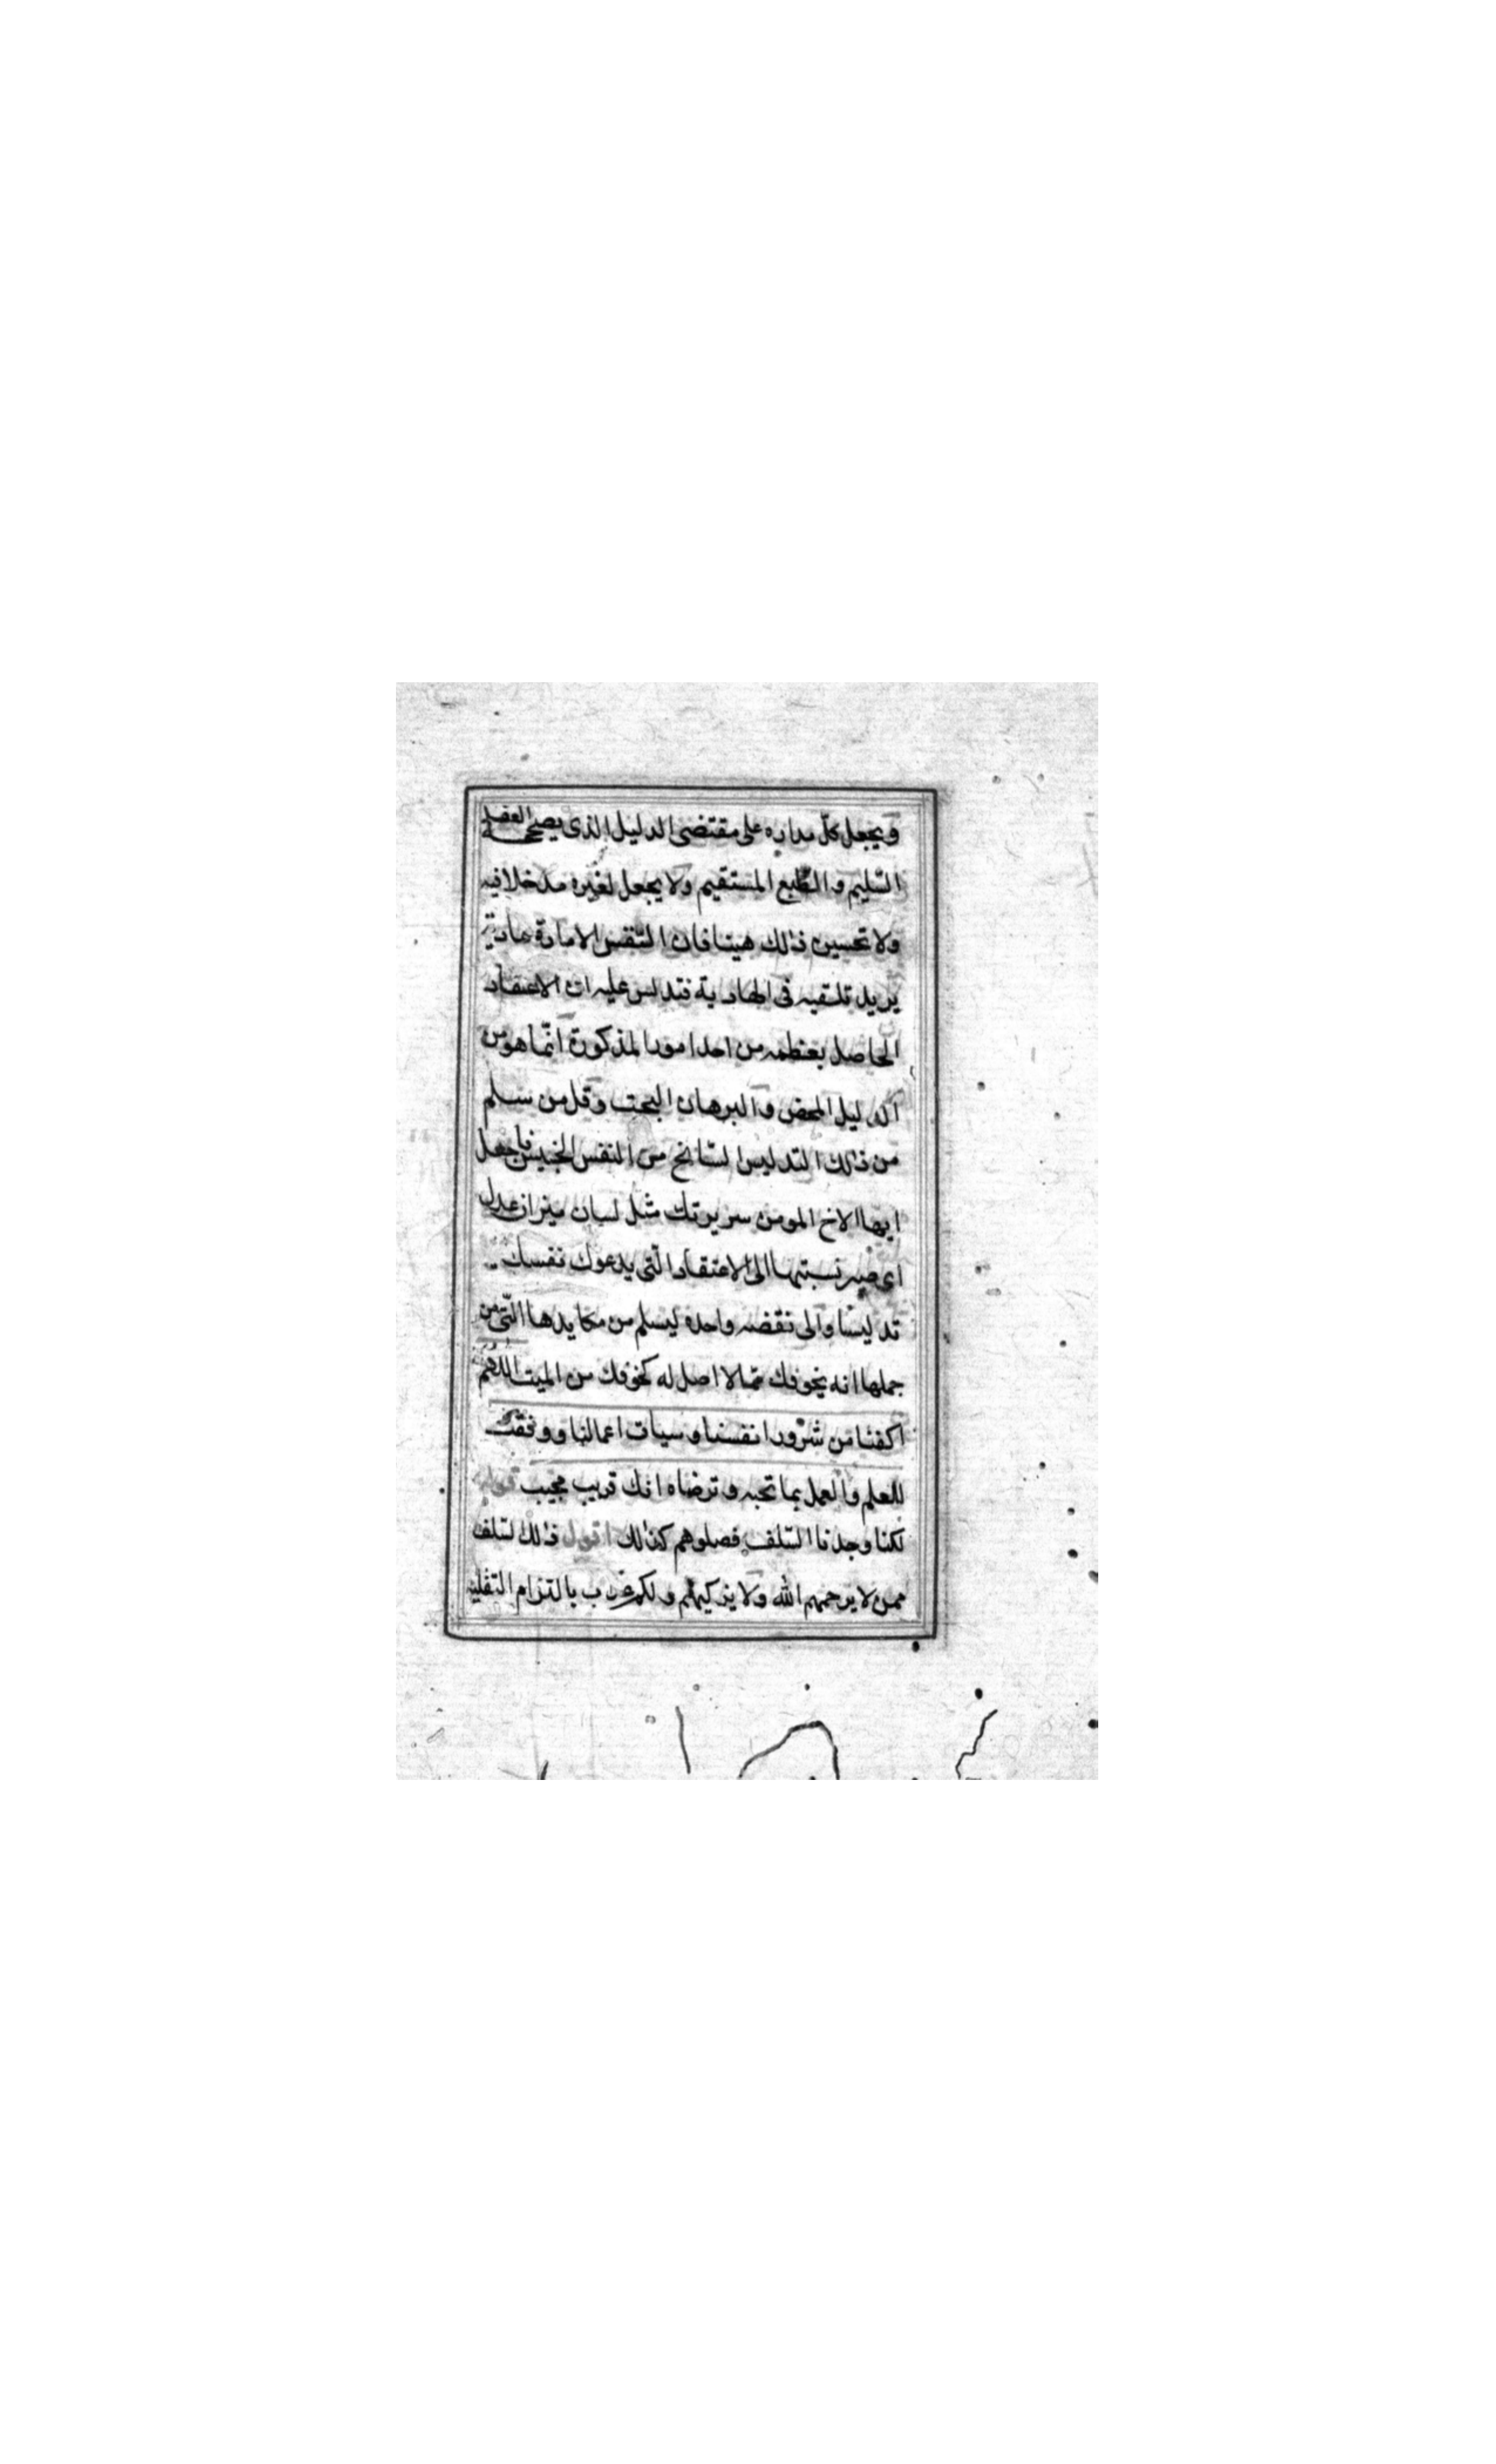 ويجعل كلّ مداره على مقتضى الدليل الذى يصححه العقل
السّليم والطّبع المستقيم ولا يجعل لغيره مدخلا فيه
ولا تحسبن ذلك هينا فان النّفس الامارة عادية
يريد تلقيه فى الهادية فتدلس عليه ان الاعتقاد
الحاصل بعظمه من احد امور المذكورة انّما هو من
الدليل المحض والبرهان البحت وقل من سلم
من ذلك التدليس السّانح من النفس الخبيس فاجعل
ايها الاخ المومن سريرتك مثل لسان ميزان عدل
اى صير نسبتها الى الاعتقاد الّتى يدعوك نفسك
تدليسا والى نقضه واحده ليسلم من مكايدها الّتى من
جملها انه يخوفك ممّا لا اصل له كخوفك من الميت اللهم
اكفنا من شرور انفسنا وسيات اعمالنا ووفقنا
للعلم والعمل بما تحبه وترضاه انك قريب مجيب قوله
لكنا وجدنا السّلف فصلوهم كذلك اقول ذلك لسلف
ممن لا يرحمهم الله ولا يزكيهم ولكم بالتزام التقليد